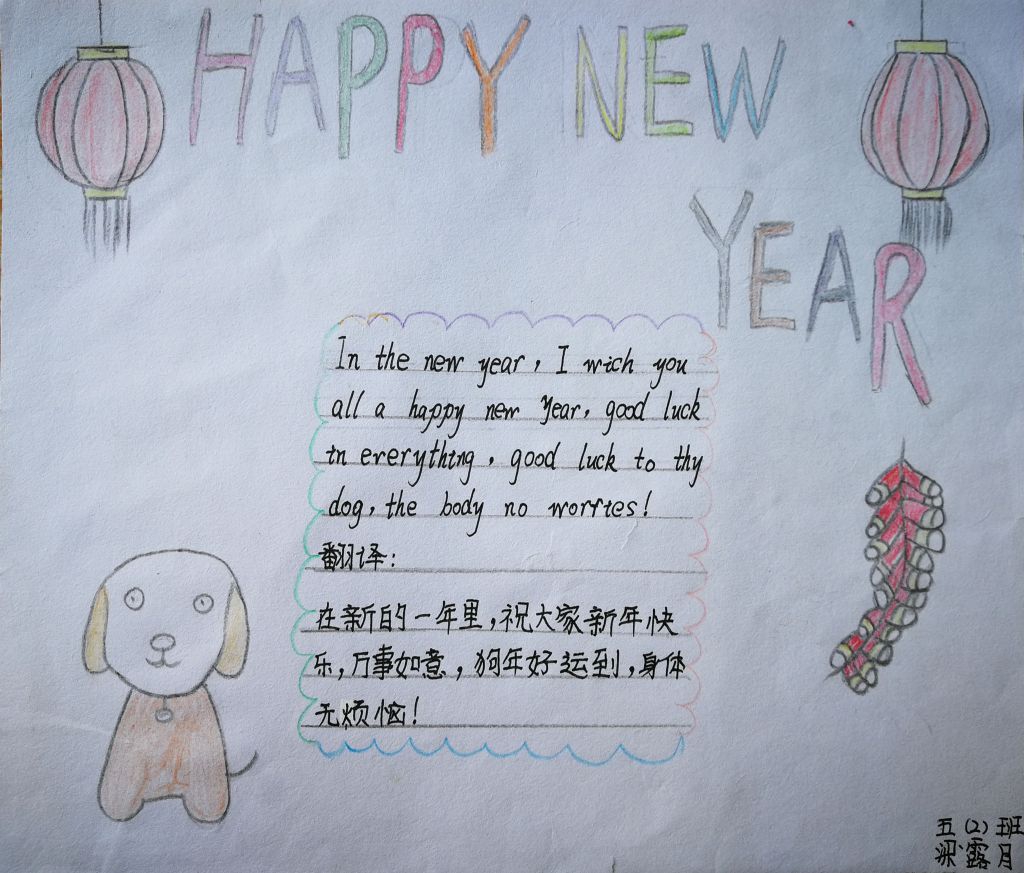 HAPPY NEW
YEAR
In the new year, I wich you
all a happy new Year, good luck
in everything, good luck to thy
dog, the body no worries!
翻译:
在新的一年里,祝大家新年快
乐,万事如意,狗年好运到,身体
无烦恼!
五(2)班
露月